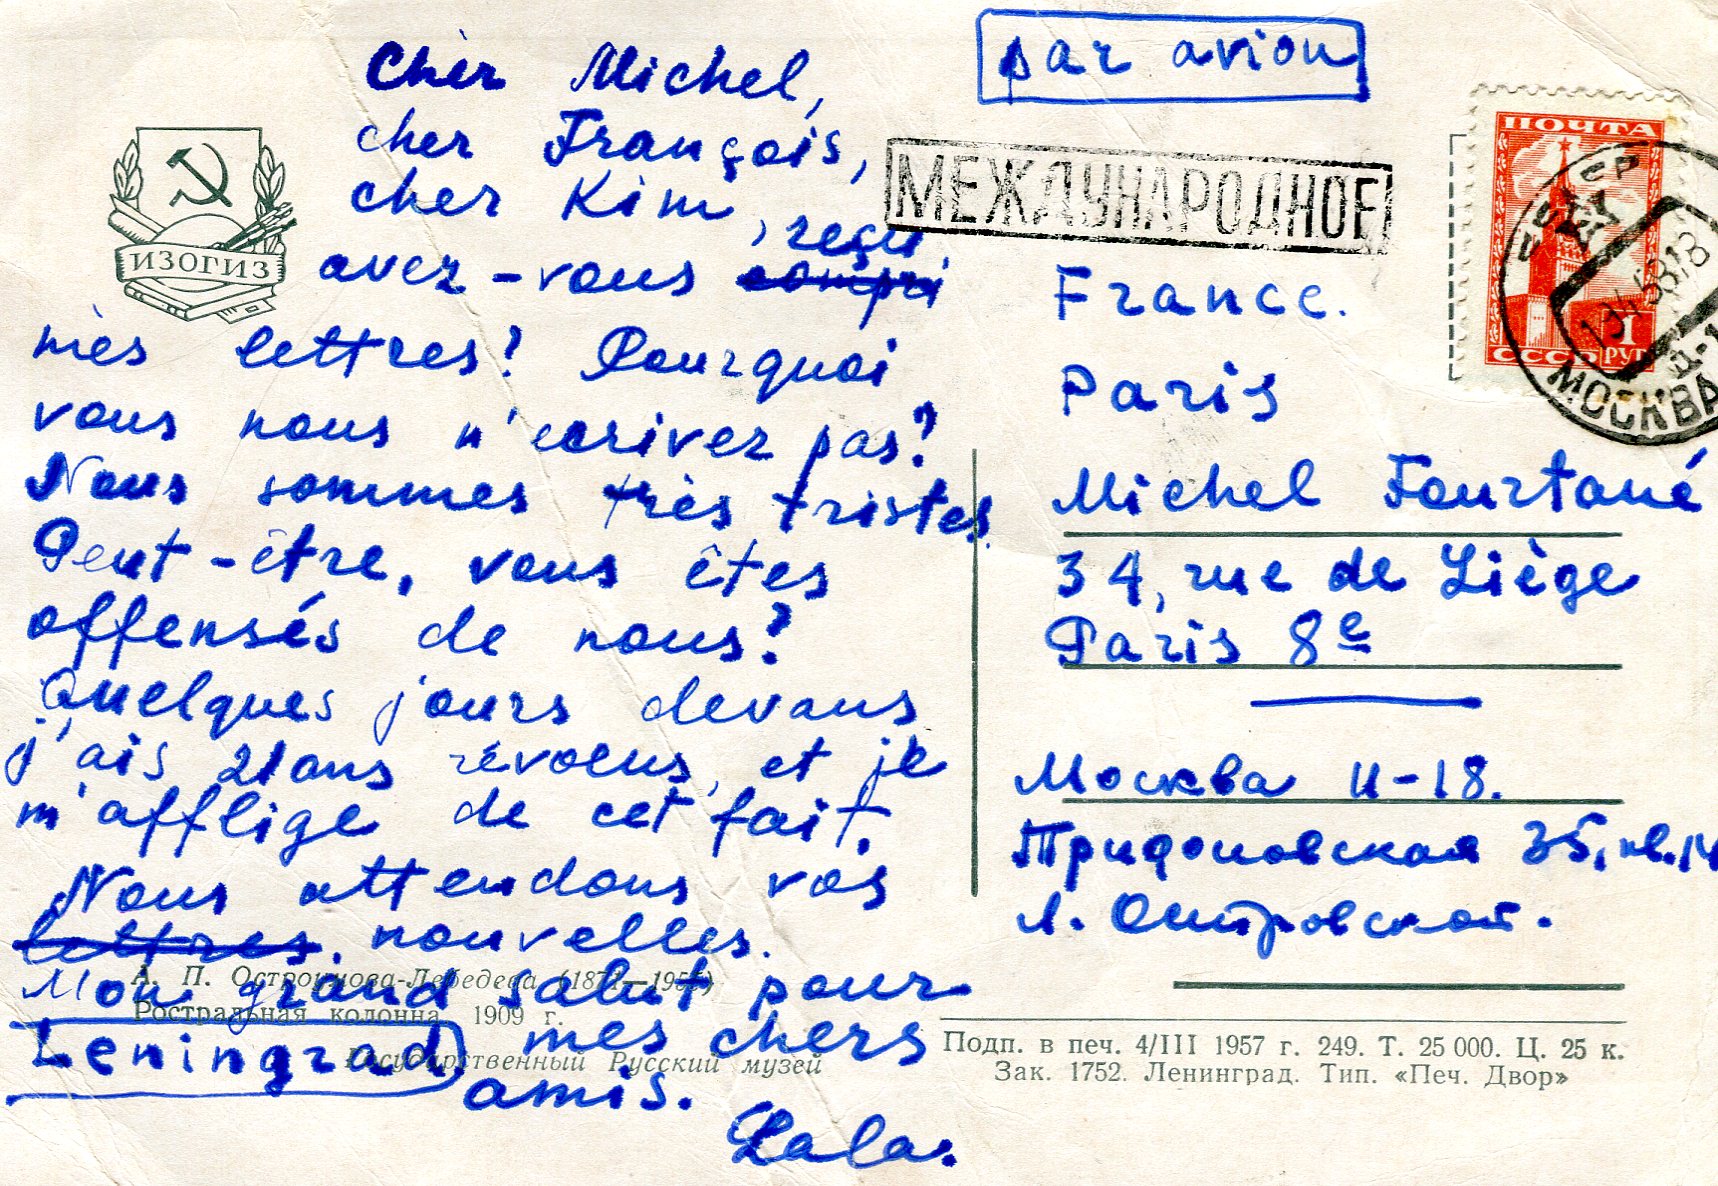 par avion
Cher Michel,
cher François,
cher Kim,
reçu
avez-vous compri
mes lettres? Pourquoi
vous nous n'ecrivez pas?
Nous sommes très tristes.
Peut-être, vous êtes
offensés de nous?
Quelques jours devans
j'ais 21 ans révolus, et je
m'afflige de cet fait.
Nous attendons vos
lettres. nouvelles.
Mon grand salut pour
mes chers
amis.
Lala.
Leningrad
ИЗОГИЗ
А. П. Остроумова-Лебедева
Ростральная колонна. 1909 г.
Государственный Русский музей
МЕЖДУНАРОДНОЕ
ПОЧТА
1
СССР РУБ
МОСКВА
France.
Paris
Michel Fourtané
34, rue de Liège
Paris 8e
Москва И-18.
35, кв. 14
Л. Островской.
Подп. в печ. 4/III 1957 г. 249. Т. 25 000. Ц. 25 к.
Зак. 1752. Ленинград. Тип. «Печ. Двор»